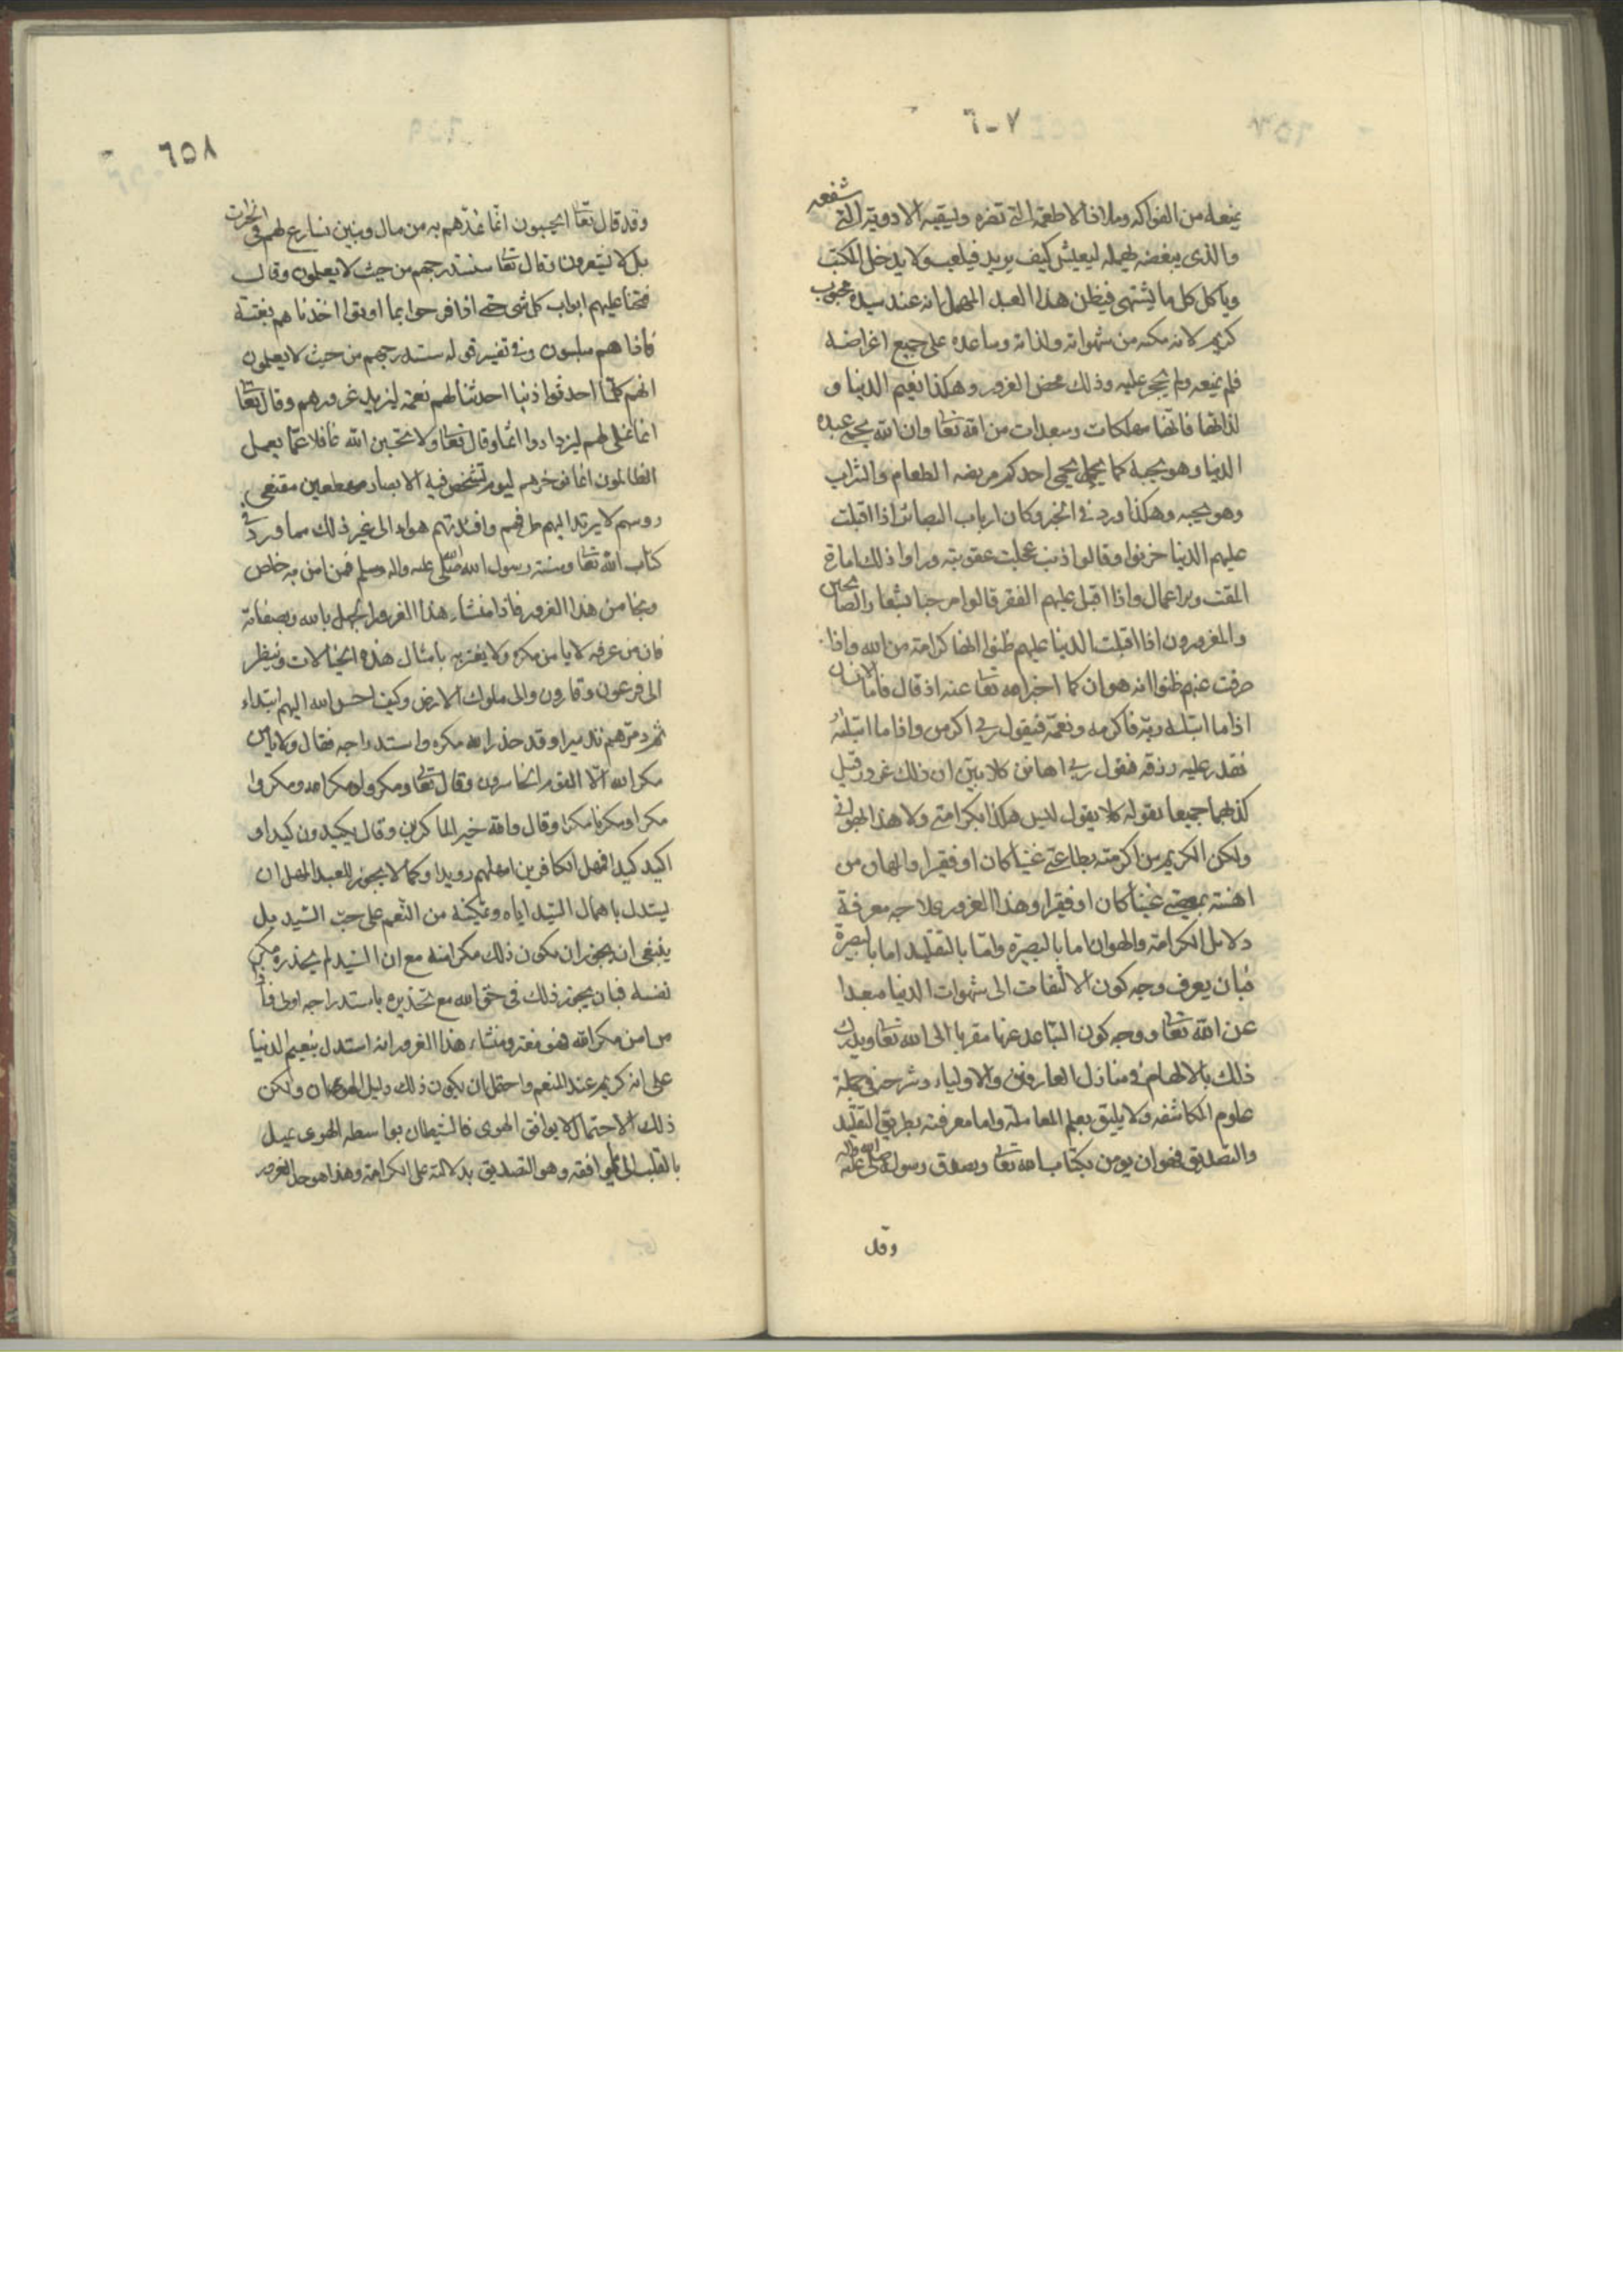 ٦-٧
يمنعه من الفواكه وملاذ الاطعمة التي تضره ويسقيه الادوية التي شفعه
والذى يبغضه يهمله ليعيش كيف يريد فيلعب ولا يدخل المكتب
وياكل كل ما يشتهى فيظن هذا العبد المهمل انه عند سيده محبوب
كريم لانه مكنه من شهواته ولذاته وساعده على جميع اغراضه
فلم يمنعه ولم يحجر عليه وذلك محض الغرور وهكذا نعيم الدنيا و
لذاتها فانها مهلكات ومبعدات من الله تعا وان الله يحمى عبده
الدنيا وهو يحبه كما يحمى احدكم مريضه الطعام والشراب
وهو يحبه وهكذا ورد فى الخبر وكان ارباب البصائر اذا اقبلت
عليهم الدنيا حزنوا وقالوا ذنب عجلت عقوبته وراوا ذلك امارة
المقت والاهمال واذا اقبل عليهم الفقر قالوا مرحبا بشعار الصالحين
والمغرورون اذا اقبلت الدنيا عليهم ظنوا انها كرامة من الله واذا
صرفت عنهم ظنوا انه هوان كما اخبر الله تعا عنه اذ قال فاما الانسان
اذا ما ابتلاه ربه فاكرمه ونعمه فيقول ربى اكرمن واذا ما ابتلاه
فقدر عليه رزقه فيقول ربى اهانن كلا بين ان ذلك غرور قيل
كذبهما جميعا بقوله كلا يقول ليس هكذا بكرامتى ولا هذا الهوانى
ولكن الكريم من اكرمته بطاعتى غنيا كان او فقيرا والمهان من
اهنته بمعصيتى غنيا كان او فقيرا وهذا الغرور علاجه معرفة
دلايل الكرامة والهوان اما بالبصيرة واما بالتقليد اما بالبصيرة
فبان يعرف وجه كون الالتفات الى شهوات الدنيا مبعدا
عن الله تعا ووجه كون التباعد عنها مقربا الى الله تعا ويدرك
ذلك بالالهام فى منازل العارفين والاولياء وشرحه فى جملة
علوم المكاشفه ولا يليق بعلم المعاملة واما معرفته بطريق التقليد
والتصديق فهو ان يومن بكتاب الله تعا ويصدق رسوله صلى الله عليه واله
وقد
٦٥٨
وقد قال تعا ايحسبون انما نمدهم به من مال وبنين نسارع لهم فى الخيرات
بل لا يشعرون وقال تعا سنستدرجهم من حيث لا يعلمون وقال
فتحنا عليهم ابواب كل شى حتى اذا فرحوا بما اوتوا اخذناهم بغتة
فاذا هم مبلسون وفى تفسير قوله سنستدرجهم من حيث لا يعلمون
انهم كلما احدثوا ذنبا احدثنا لهم نعمة ليزيد غرورهم وقال تعا
انما نملى لهم ليزدادوا اثما وقال تعا ولا تحسبن الله غافلا عما يعمل
الظالمون انما نوخرهم ليوم تشخص فيه الابصار مهطعين مقنعى
روسهم لا يرتد اليهم طرفهم وافئدتهم هواء الى غير ذلك مما ورد فى
كتاب الله تعا وسنة رسول الله صلى الله عليه واله وسلم فمن امن به خلص
ونجا من هذا الغرور فاذا منشاء هذا الغرور الجهل بالله وبصفاته
فان من عرفه لا يامن مكره ولا يغتر به بامثال هذه الخيالات وينظر
الى فرعون وقارون والى ملوك الارض وكيف احسن الله اليهم ابتداء
ثم دمرهم تدميرا وقد حذر الله مكره واستدراجه فقال ولا يامن
مكر الله الا القوم الخاسرون وقال تعا ومكروا ومكر الله ومكروا
مكرا ومكرنا مكرا وقال والله خير الماكرين وقال يكيدون كيدا و
اكيد كيدا فمهل الكافرين امهلهم رويدا وكما لا يجوز للعبد المهمل ان
يستدل باهمال السيد اياه وتمكينه من النعم على حب السيد بل
ينبغى ان يجوز ان يكون ذلك مكرا منه مع ان السيد لم يحذره مكر
نفسه فبان يجوز ذلك فى حق الله مع تحذيره باستدراجه اولى فاذا
من امن مكر الله فهو مغتر ومنشاء هذا الغرور انه استدل بنعيم الدنيا
على انه كريم عند المنعم واحتمل ان يكون ذلك دليل الهوان ولكن
ذلك الاحتمال لا يوافق الهوى فالشيطان بواسطه الهوى يميل
بالقلب الى ما يوافقه وهو التصديق بدلالته على الكرامة وهذا هو حد الغرور